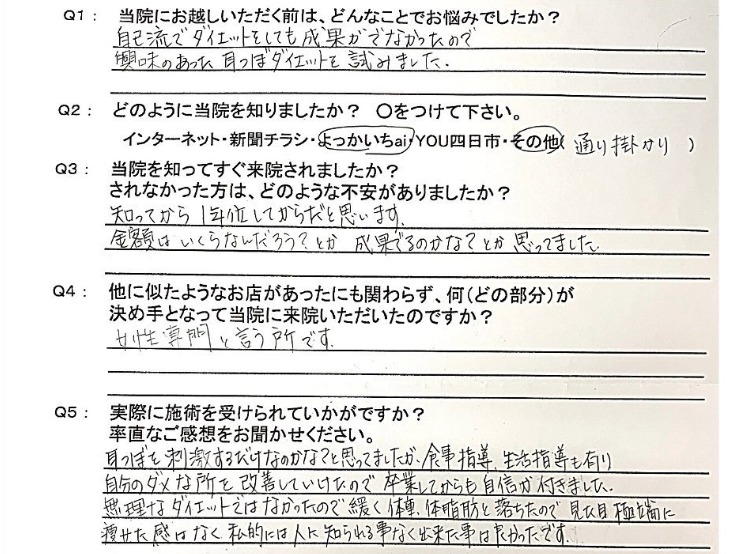 Q1： 当院にお越しいただく前は、どんなことでお悩みでしたか？
自己流でダイエットをしても成果がでなかったので
興味のあった耳つぼダイエットを試みました。
Q2： どのように当院を知りましたか？ ○をつけて下さい。
インターネット・新聞チラシ・よっかいちai・YOU四日市・その他( 通り掛かり )
Q3： 当院を知ってすぐ来院されましたか？
されなかった方は、どのような不安がありましたか？
知ってから1年位してからだと思います。
金額はいくらなんだろう？とか 成果でるのかな？とか思ってました。
Q4： 他に似たようなお店があったにも関わらず、何(どの部分)が
決め手となって当院に来院いただいたのですか？
女性専門と言う所です。
Q5： 実際に施術を受けられていかがですか？
率直なご感想をお聞かせください。
耳つぼを刺激するだけなのかな？と思ってましたが、食事指導、生活指導も有り
自分のダメな所を改善していけたので卒業してからも自信が付きました。
無理なダイエットではなかったので緩く体重、体脂肪と落ちたので見た目極端に
痩せた感はなく私的には人に知られる事なく出来た事は良かったです。